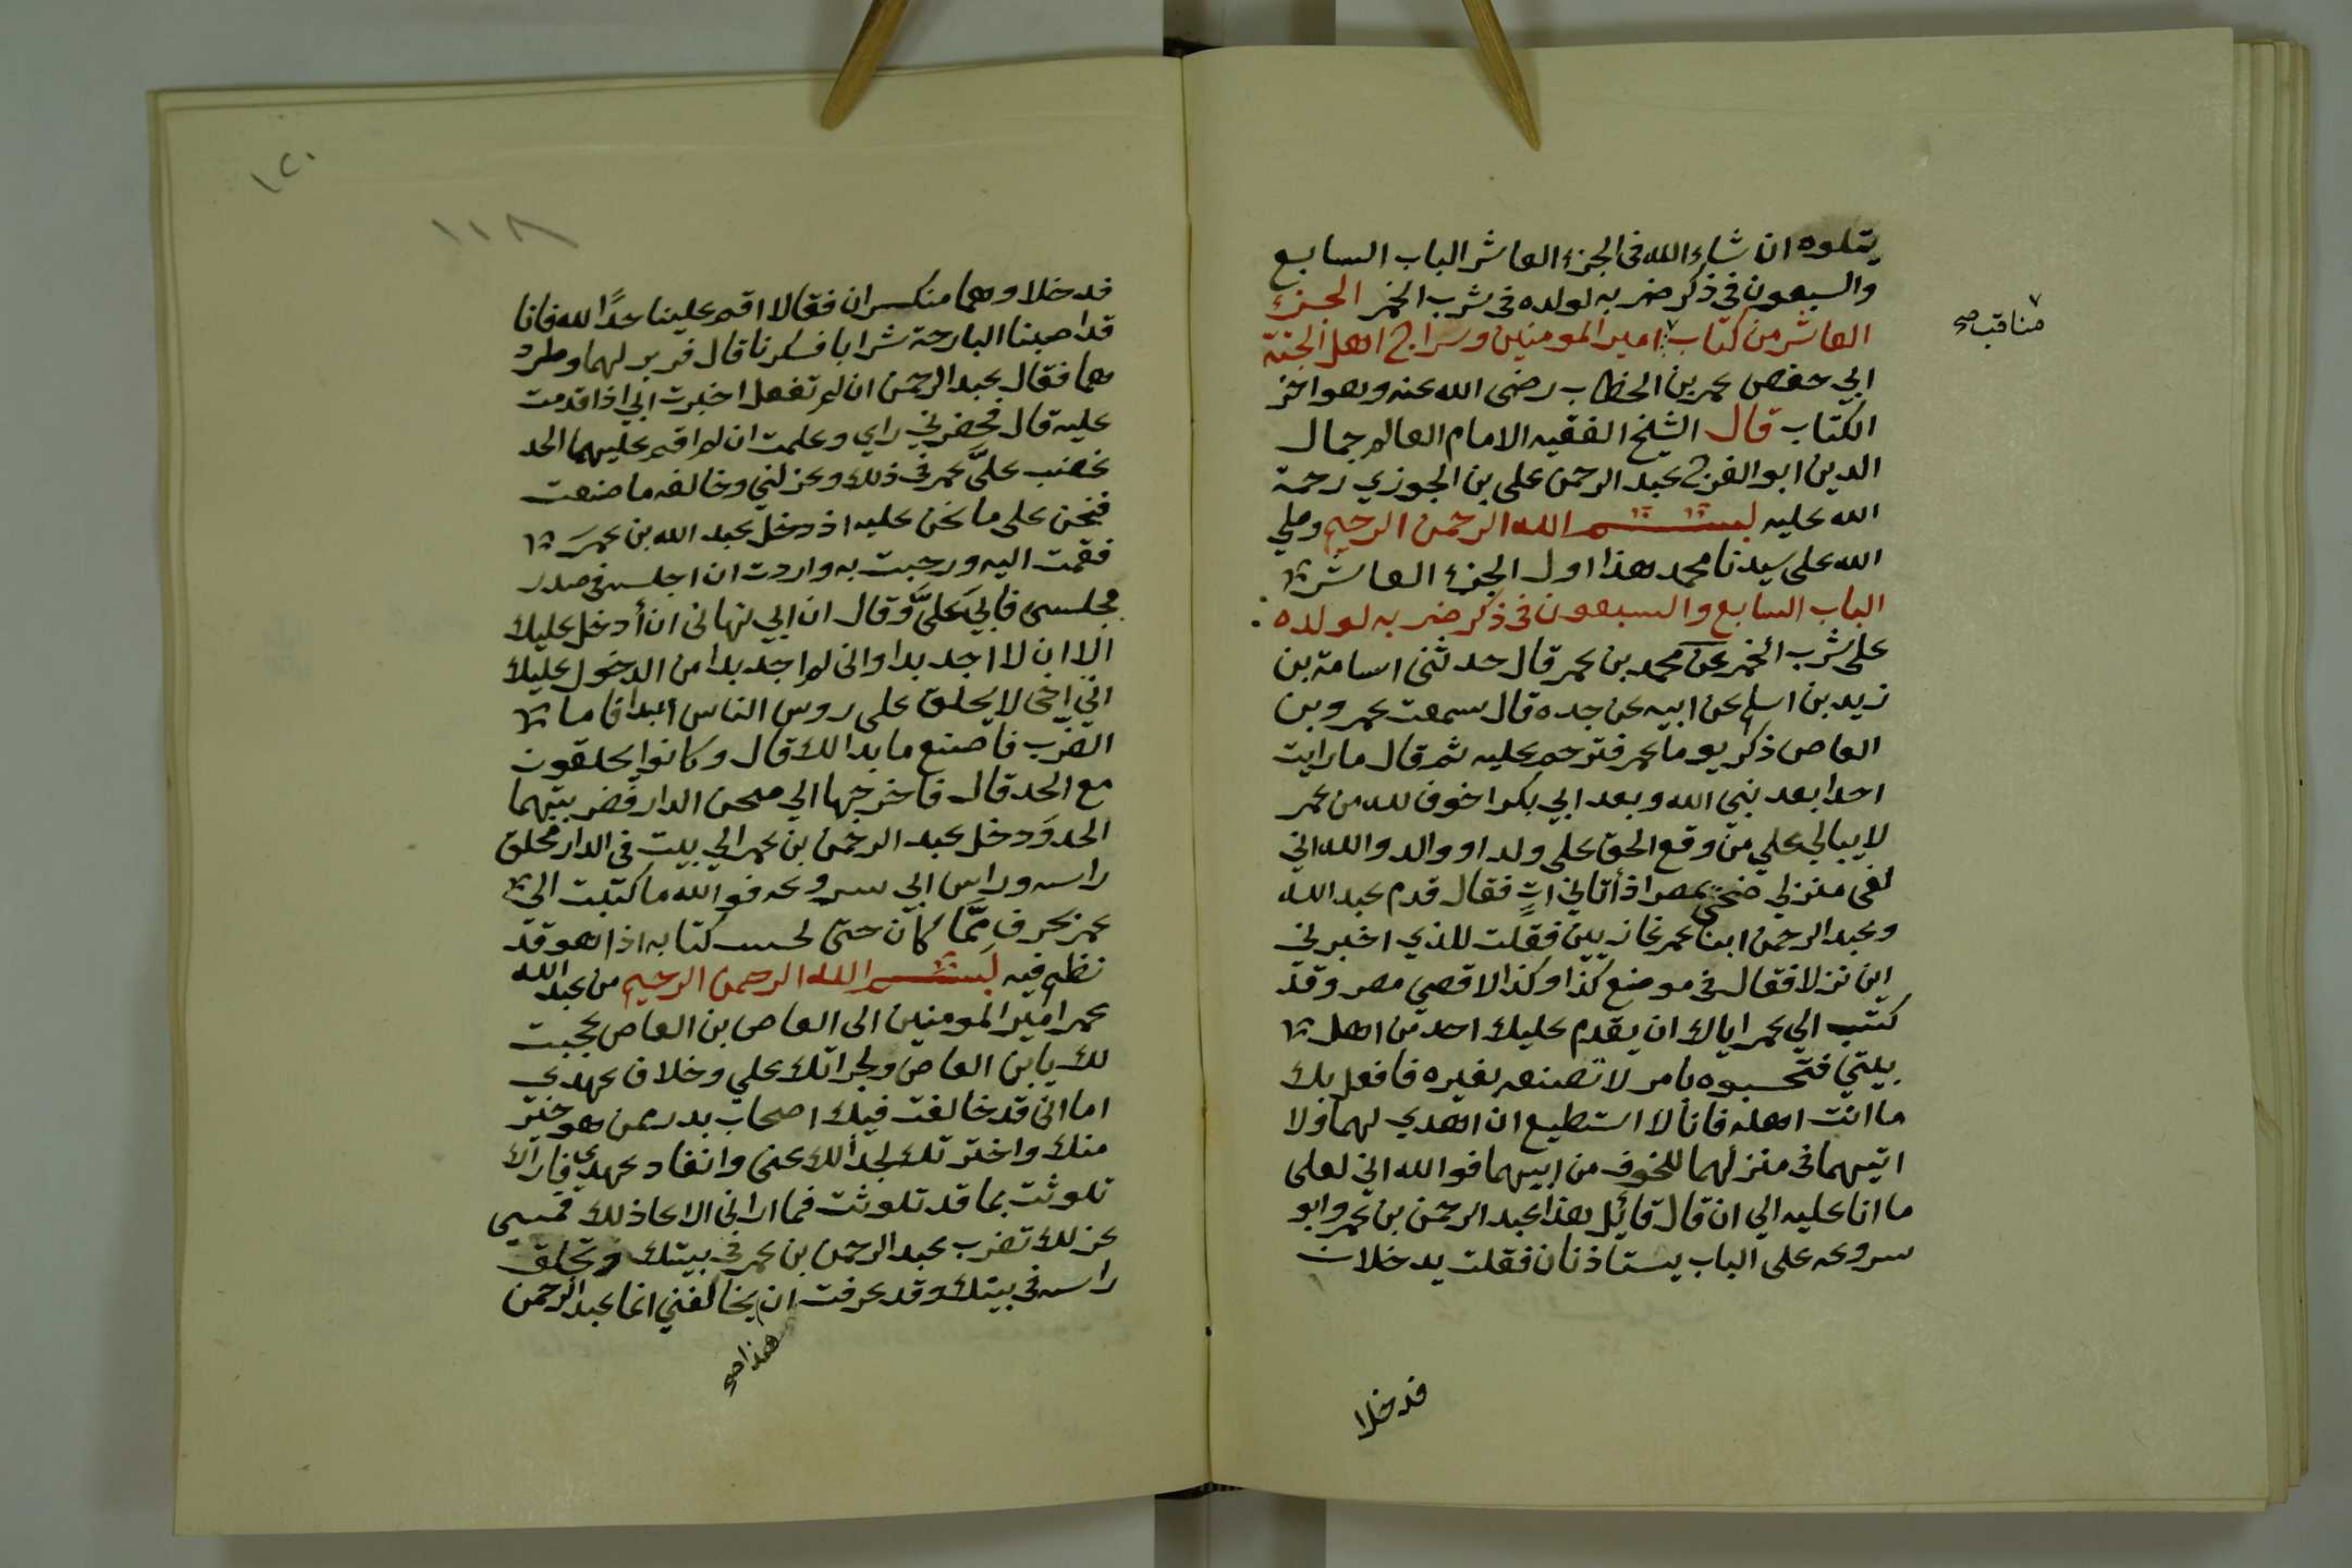 يتلوه ان شاء الله في الجزء العاشر الباب السابع
والسبعون في ذكر ضربه لولده في شرب الخمر الجزء
العاشر من كتاب امير المومنين وسراج اهل الجنة
مناقب صح
ابي حفص عمر بن الخطاب رضى الله عنه وهو اخر
الكتاب قال الشيخ الفقيه الامام العالم جمال
الدين ابو الفرج عبد الرحمن على بن الجوزي رحمة
الله عليه بسم الله الرحمن الرحيم وصلي
الله على سيدنا محمد هذا اول الجزء العاشر
الباب السابع والسبعون في ذكر ضربه لولده
على شرب الخمر عن محمد بن عمر قال حدثنى اسامة بن
زيد بن اسلم عن ابيه عن جده قال سمعت عمرو بن
العاص ذكر يوما عمر فترحم عليه ثم قال ما رايت
احدا بعد نبي الله وبعد ابي بكر اخوف لله من عمر
لا يبالي علي من وقع الحق على ولد او والد والله اني
لفى منزلي ضحى بمصر اذ أتاني اتٍ فقال قدم عبد الله
وعبد الرحمن ابنا عمر غازيين فقلت للذي اخبرني
اين نزلا فقال في موضع كذا وكذا لاقصى مصر وقد
كتب الي عمر اياك ان يقدم عليك احد من اهل
بيتي فتحسبوه بامر لا تصنعه بغيره فافعل بك
ما انت اهله فانا لا استطيع ان اهدي لهما ولا
اتيهما في منزلهما للخوف من ابيهما فوالله اني لعلى
ما انا عليه الي ان قال قائل هذا عبد الرحمن بن عمر وابو
سروعه على الباب يستاذنان فقلت يدخلان
فدخلا
١٢٠
١١٨
فدخلا وهما منكسران فقالا اقم علينا حدًا لله فانا
قد اصبنا البارحة شرابا فسكرنا قال فزبرلهما وطرد
هما فقال عبد الرحمن ان لم تفعل اخبرت ابي اذا قدمت
عليه قال فحضرني راي وعلمت ان لم اقم عليهما الحد
غضب علىَّ عمر في ذلك وعزلني وخالفه ما صنعت
فنحن على ما نحن عليه اذ دخل عبد الله بن عمر
فقمت اليه ورحبت به واردت ان اجلسه في صدر
مجلسي فابي علىَّ وقال ان ابي نهاني ان أدخل عليك
الا ان لا اجد بدا واني لم اجد بدا من الدخول عليك
اني اخى لا يحلق على روس الناس ابدا فاما
الضرب فاصنع ما بدا لك قال وكانوا يحلقون
مع الحد قال فاخرجتهما الي صحن الدار فضربتهما
الحد ودخل عبد الرحمن بن عمر الي بيت في الدار فحلق
راسه وراس ابي سروعه فوالله ما كتبت الى
عمر بحرف مما كان حتى كتابه اذا هو قد
نظم فيه بسم الله الرحمن الرحيم من عبد الله
عمر امير المومنين الى العاص بن العاص عجبت
لك يا بن العاص ولجراتك علي وخلاف عهدي
اما انى قد خالفت فيك اصحاب بدر ممن هو خير
منك واخترتك لجدالك عني وانفاد عهدي فاراك
تلوثت بما قد تلوثت فما اراني الا عاذلك فمسي
عزلك تضرب عبد الرحمن بن عمر في بيتك وتحلق
راسه في بيتك وقد عرفت ان يخالفني انما عبد الرحمن
هذا صح